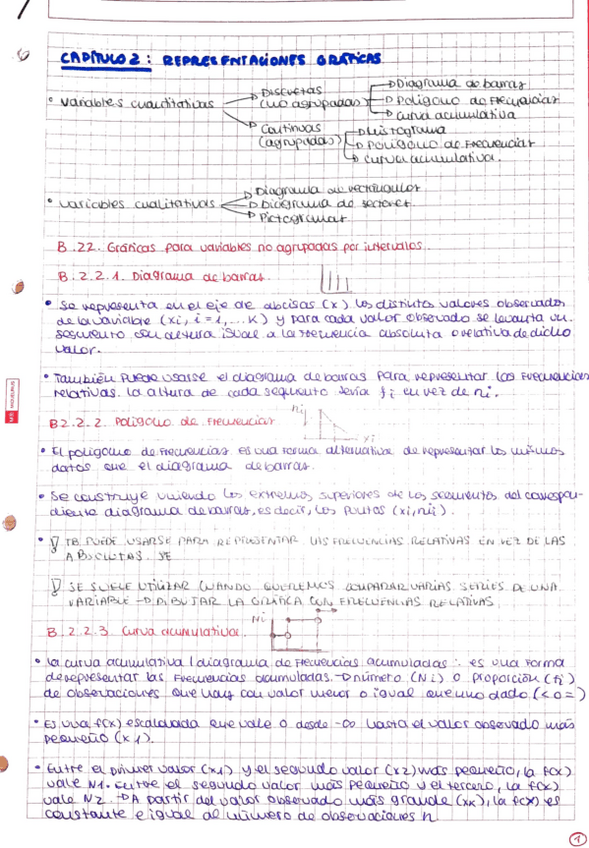 CAPÍTULO 2: REPRESENTACIONES GRÁFICAS
• Variables cuantitativas
Discretas
(no agrupadas)
Diagrama de barras
Polígono de Frecuencias
Curva acumulativa
Continuas
(agrupadas)
Histograma
Polígono de Frecuencias
Curva acumulativa.
• Variables cualitativas
Diagrama de rectángulos
Diagrama de sectores
Pictogramas
B.22. Gráficas para variables no agrupadas por intervalos.
B.2.2.1. Diagrama de barras.
• Se representa en el eje de abcisas (x) los distintos valores observados
de la variable (xi, i=1,...K) y para cada valor observado se levanta un
segmento con altura igual a la frecuencia absoluta o relativa de dicho
valor.
• También puede usarse el diagrama de barras para representar las frecuencias
relativas. La altura de cada segmento sería fi en vez de ni.
B2.2.2. Polígono de Frecuencias
ni
xi
• El polígono de frecuencias es una forma alternativa de representar los mismos
datos que el diagrama de barras.
• Se construye uniendo los extremos superiores de los segmentos del correspon-
diente diagrama de barras, es decir, los puntos (xi,ni).
• TB PUEDE USARSE PARA REPRESENTAR LAS FRECUENCIAS RELATIVAS EN VEZ DE LAS
ABSOLUTAS. SE
SE SUELE UTILIZAR CUANDO QUEREMOS COMPARAR VARIAS SERIES DE UNA
VARIABLE → DIBUJAR LA GRÁFICA CON FRECUENCIAS RELATIVAS.
B.2.2.3 Curva acumulativa.
Ni
• La curva acumulativa / diagrama de frecuencias acumuladas: es una forma
de representar las Frecuencias acumuladas → número (Ni) o proporción (fi)
de observaciones que hay con valor menor o igual que uno dado (< o =)
• Es una f(x) escalonada que vale 0 desde -∞ hasta el valor observado más
pequeño (x1).
• Entre el primer valor (x1) y el segundo valor (x2) más pequeño, la f(x)
vale N1. Entre el segundo valor más pequeño y el tercero, la f(x)
vale N2. → A partir del valor observado más grande (xk), la f(x) es
constante e igual al número de observaciones n
1